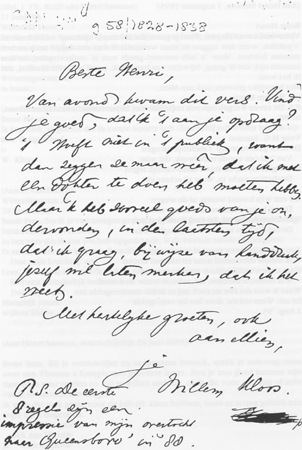 g 58) 1828-1838
Beste Henri,
Van avond kwam dit vers. Vind
je goed, dat ik 't aan je opdraag?
't Hoeft niet in 't publiek, want
dan zeggen ze maar wéér, dat ik met
een dokter te doen heb moeten hebben.
Maar ik heb zooveel goeds van je on-
dervonden, in den laatsten tijd,
dat ik graag, bij wijze van handdruk,
jezelf wil laten merken, dat ik het
weet.
Met hartelijke groeten, ook
aan Mien,
je
Willem Kloos.
P.S. De eerste
8 regels zijn een
impressie van mijn overtocht
naar Queensboro' in '88.